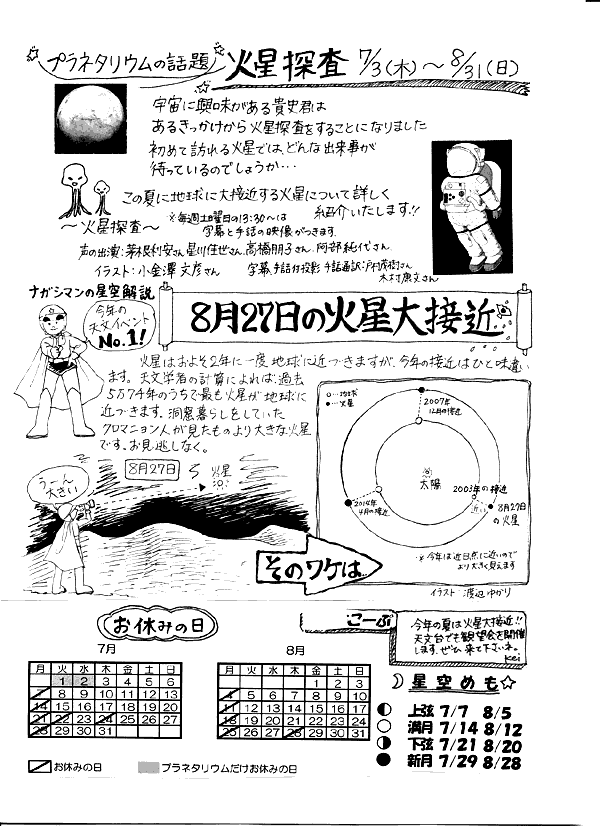 プラネタリウムの話題 火星探査 7/3(木)～8/31(日)
宇宙に興味がある貴史君は
あるきっかけから火星探査をすることになりました
初めて訪れる火星では、どんな出来事が
待っているのでしょうか…
この夏に地球に大接近する火星について詳しく
紹介いたします!!
～火星探査～
※毎週土曜日の13:30～は
字幕と手話の映像がつきます
声の出演:茅根利安さん 星川佳世さん 高橋朋子さん 阿部純代さん
イラスト:小金澤文彦さん 字幕、手話付投影 手話通訳:戸村茂樹さん
木村康文さん
ナガシマンの星空解説
今年の
天文イベント
No.1!
8月27日の火星大接近
火星はおよそ2年に一度地球に近づきますが、今年の接近はひと味違い
ます。天文学者の計算によれば過去
5万74年のうちで最も火星が地球に
近づきます。洞窟暮らしをしていた
クロマニョン人が見たものより大きな火星
です。お見逃しなく。
○…地球
●…火星
2007年
12月の接近
太陽
2003年の接近
近い
8月27日
の火星
2014年
4月の接近
※今年は近日点に近いので
より大きく見えます
イラスト 渡辺ゆかり
8月27日
火星
うーん
大きい
そのワケは…
お休みの日
7月
月 火 水 木 金 土 日
1 2 3 4 5 6
7 8 9 10 11 12 13
14 15 16 17 18 19 20
21 22 23 24 25 26 27
28 29 30 31
8月
月 火 水 木 金 土 日
1 2 3
4 5 6 7 8 9 10
11 12 13 14 15 16 17
18 19 20 21 22 23 24
25 26 27 28 29 30 31
お休みの日 プラネタリウムだけお休みの日
こーぷ
今年の夏は火星大接近!!
天文台でも観望会を開催
します。ぜひ来て下さいネ。
Kei
星空めも
上弦 7/7 8/5
満月 7/14 8/12
下弦 7/21 8/20
新月 7/29 8/28